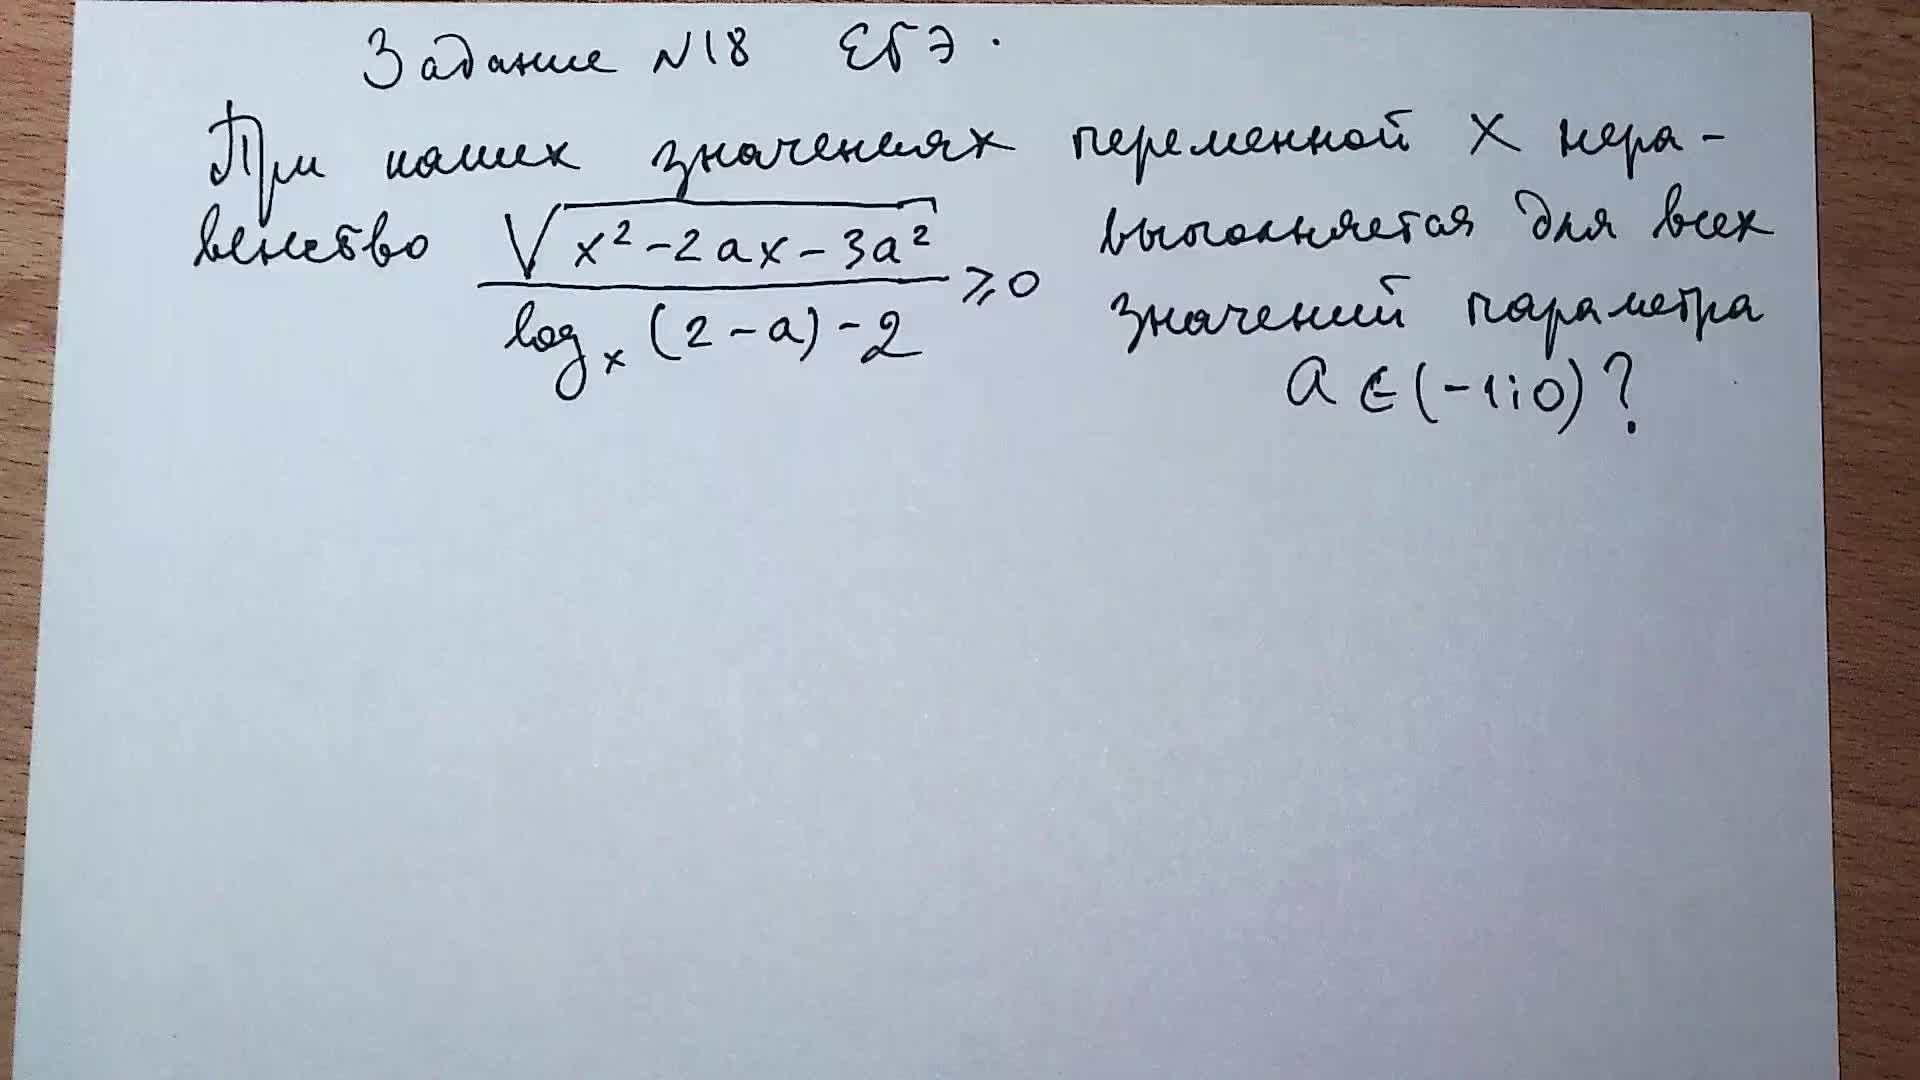 Задание N18 ЕГЭ.
При каких значениях переменной x нера-
венство √(x² - 2ax - 3a²) / (log_x (2 - a) - 2) ⩾ 0 выполняется для всех
значений параметра
a ∈ (-1; 0)?